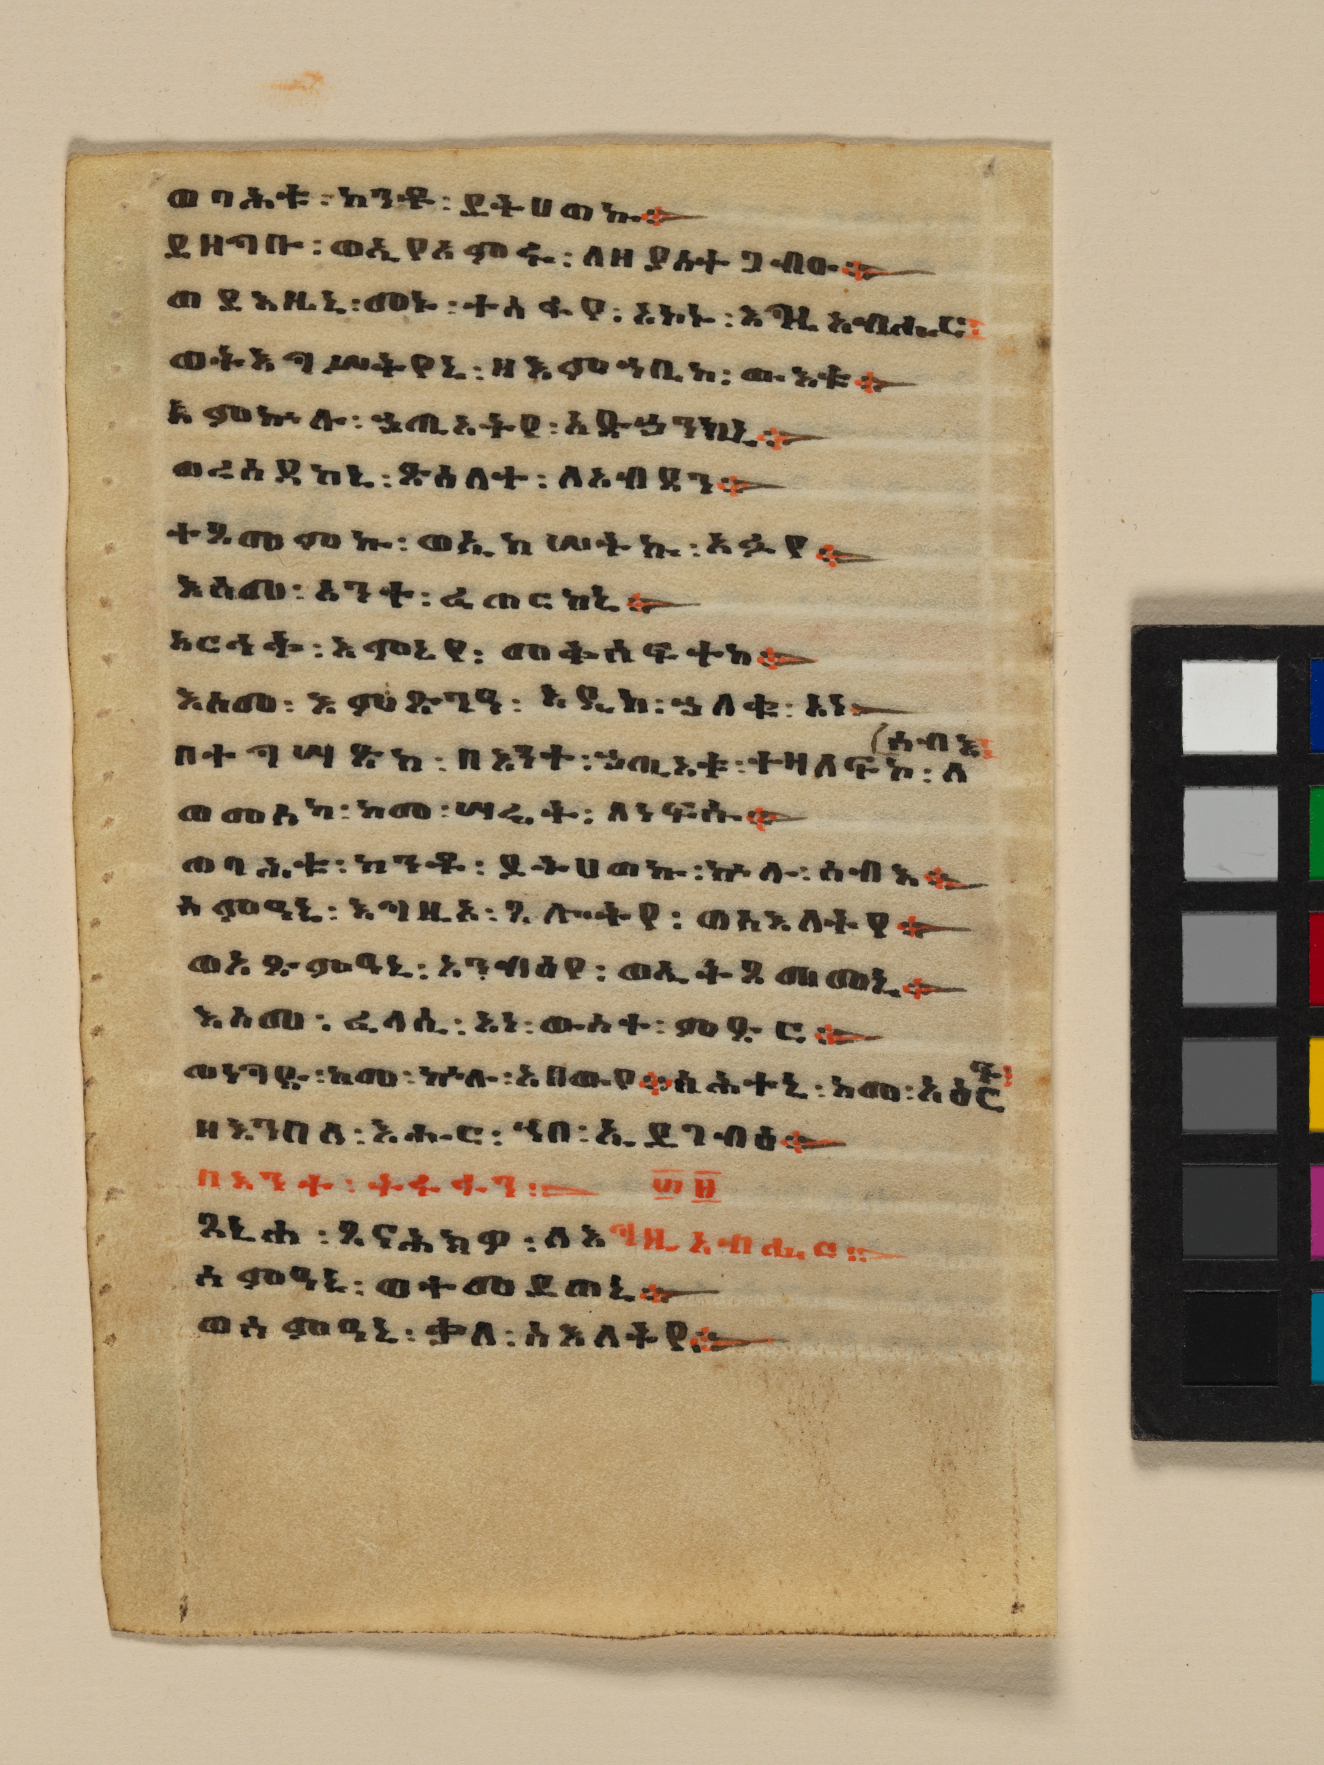 ወባሕቱ፡ ከንቶ፡ ይትሀወኩ።
ይዘግቡ፡ ወኢያአምሩ፡ ለዘያስተጋብው።
ወይእዜኒ፡ መኑ፡ ተስፋየ፡ አኮኑ፡ እግዚአብሔር፡
ወትእግሥትየኒ፡ ዘእምኀቤከ፡ ውእቱ።
እምኵሉ፡ ኃጢአትየ፡ አድኅንከኒ።
ወረሰይከኒ፡ ጽዕለተ፡ ለአብዳን።
ተጸመምኩ፡ ወኢከሠትኩ፡ አፉየ።
እስመ፡ አንተ፡ ፈጠርከኒ።
አርሕቅ፡ እምኔየ፡ መቅሰፍተከ።
እስመ፡ እምጽንዓ፡ እዴከ፡ ኃለቁ፡ አነ።
በተግሣጽከ፡ በእንተ፡ ኃጢአቱ፡ ተዛለፍኮ፡ ለሰብእ፡
ወመስኮ፡ ከመ፡ ሣሬት፡ ለነፍሱ።
ወባሕቱ፡ ከንቶ፡ ይትሀወኩ፡ ኵሉ፡ ሰብእ።
ስምዓኒ፡ እግዚኦ፡ ጸሎትየ፡ ወስእለትየ።
ወአጽምዓኒ፡ አንብዕየ፡ ወኢትጸመመኒ።
እስመ፡ ፈላሲ፡ አነ፡ ውስተ፡ ምድር።
ወነግድ፡ ከመ፡ ኵሉ፡ አበውየ። ስሕተኒ፡ ከመ፡ አዕርፍ፡
ዘእንበለ፡ እሑር፡ ኀበ፡ ኢይገብዕ።
በእንተ፡ ፴፱
ጸኒሐ፡ ጸናሕክዎ፡ ለእግዚአብሔር።
ሰምዓኒ፡ ወተመይጠኒ።
ወሰምዓኒ፡ ቃለ፡ ስእለትየ።